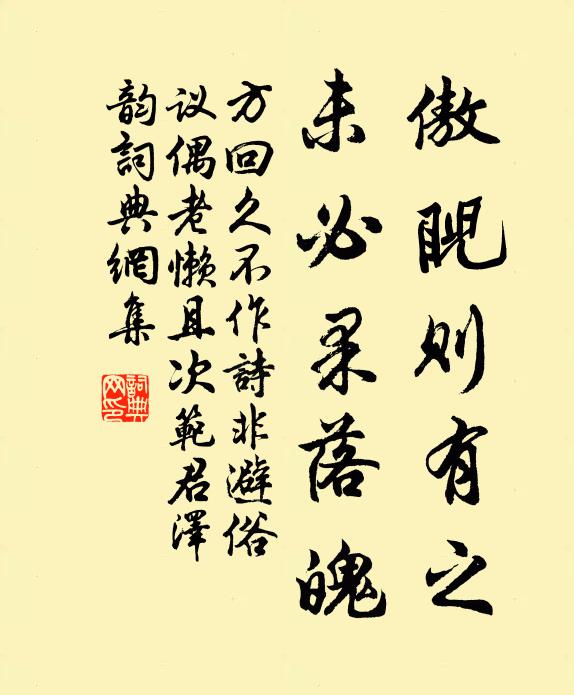 傲睨则有之
未必果落魄
方回久不作詩非避俗
议偶老懒且次範君澤
韵詞典網集
詞典网印